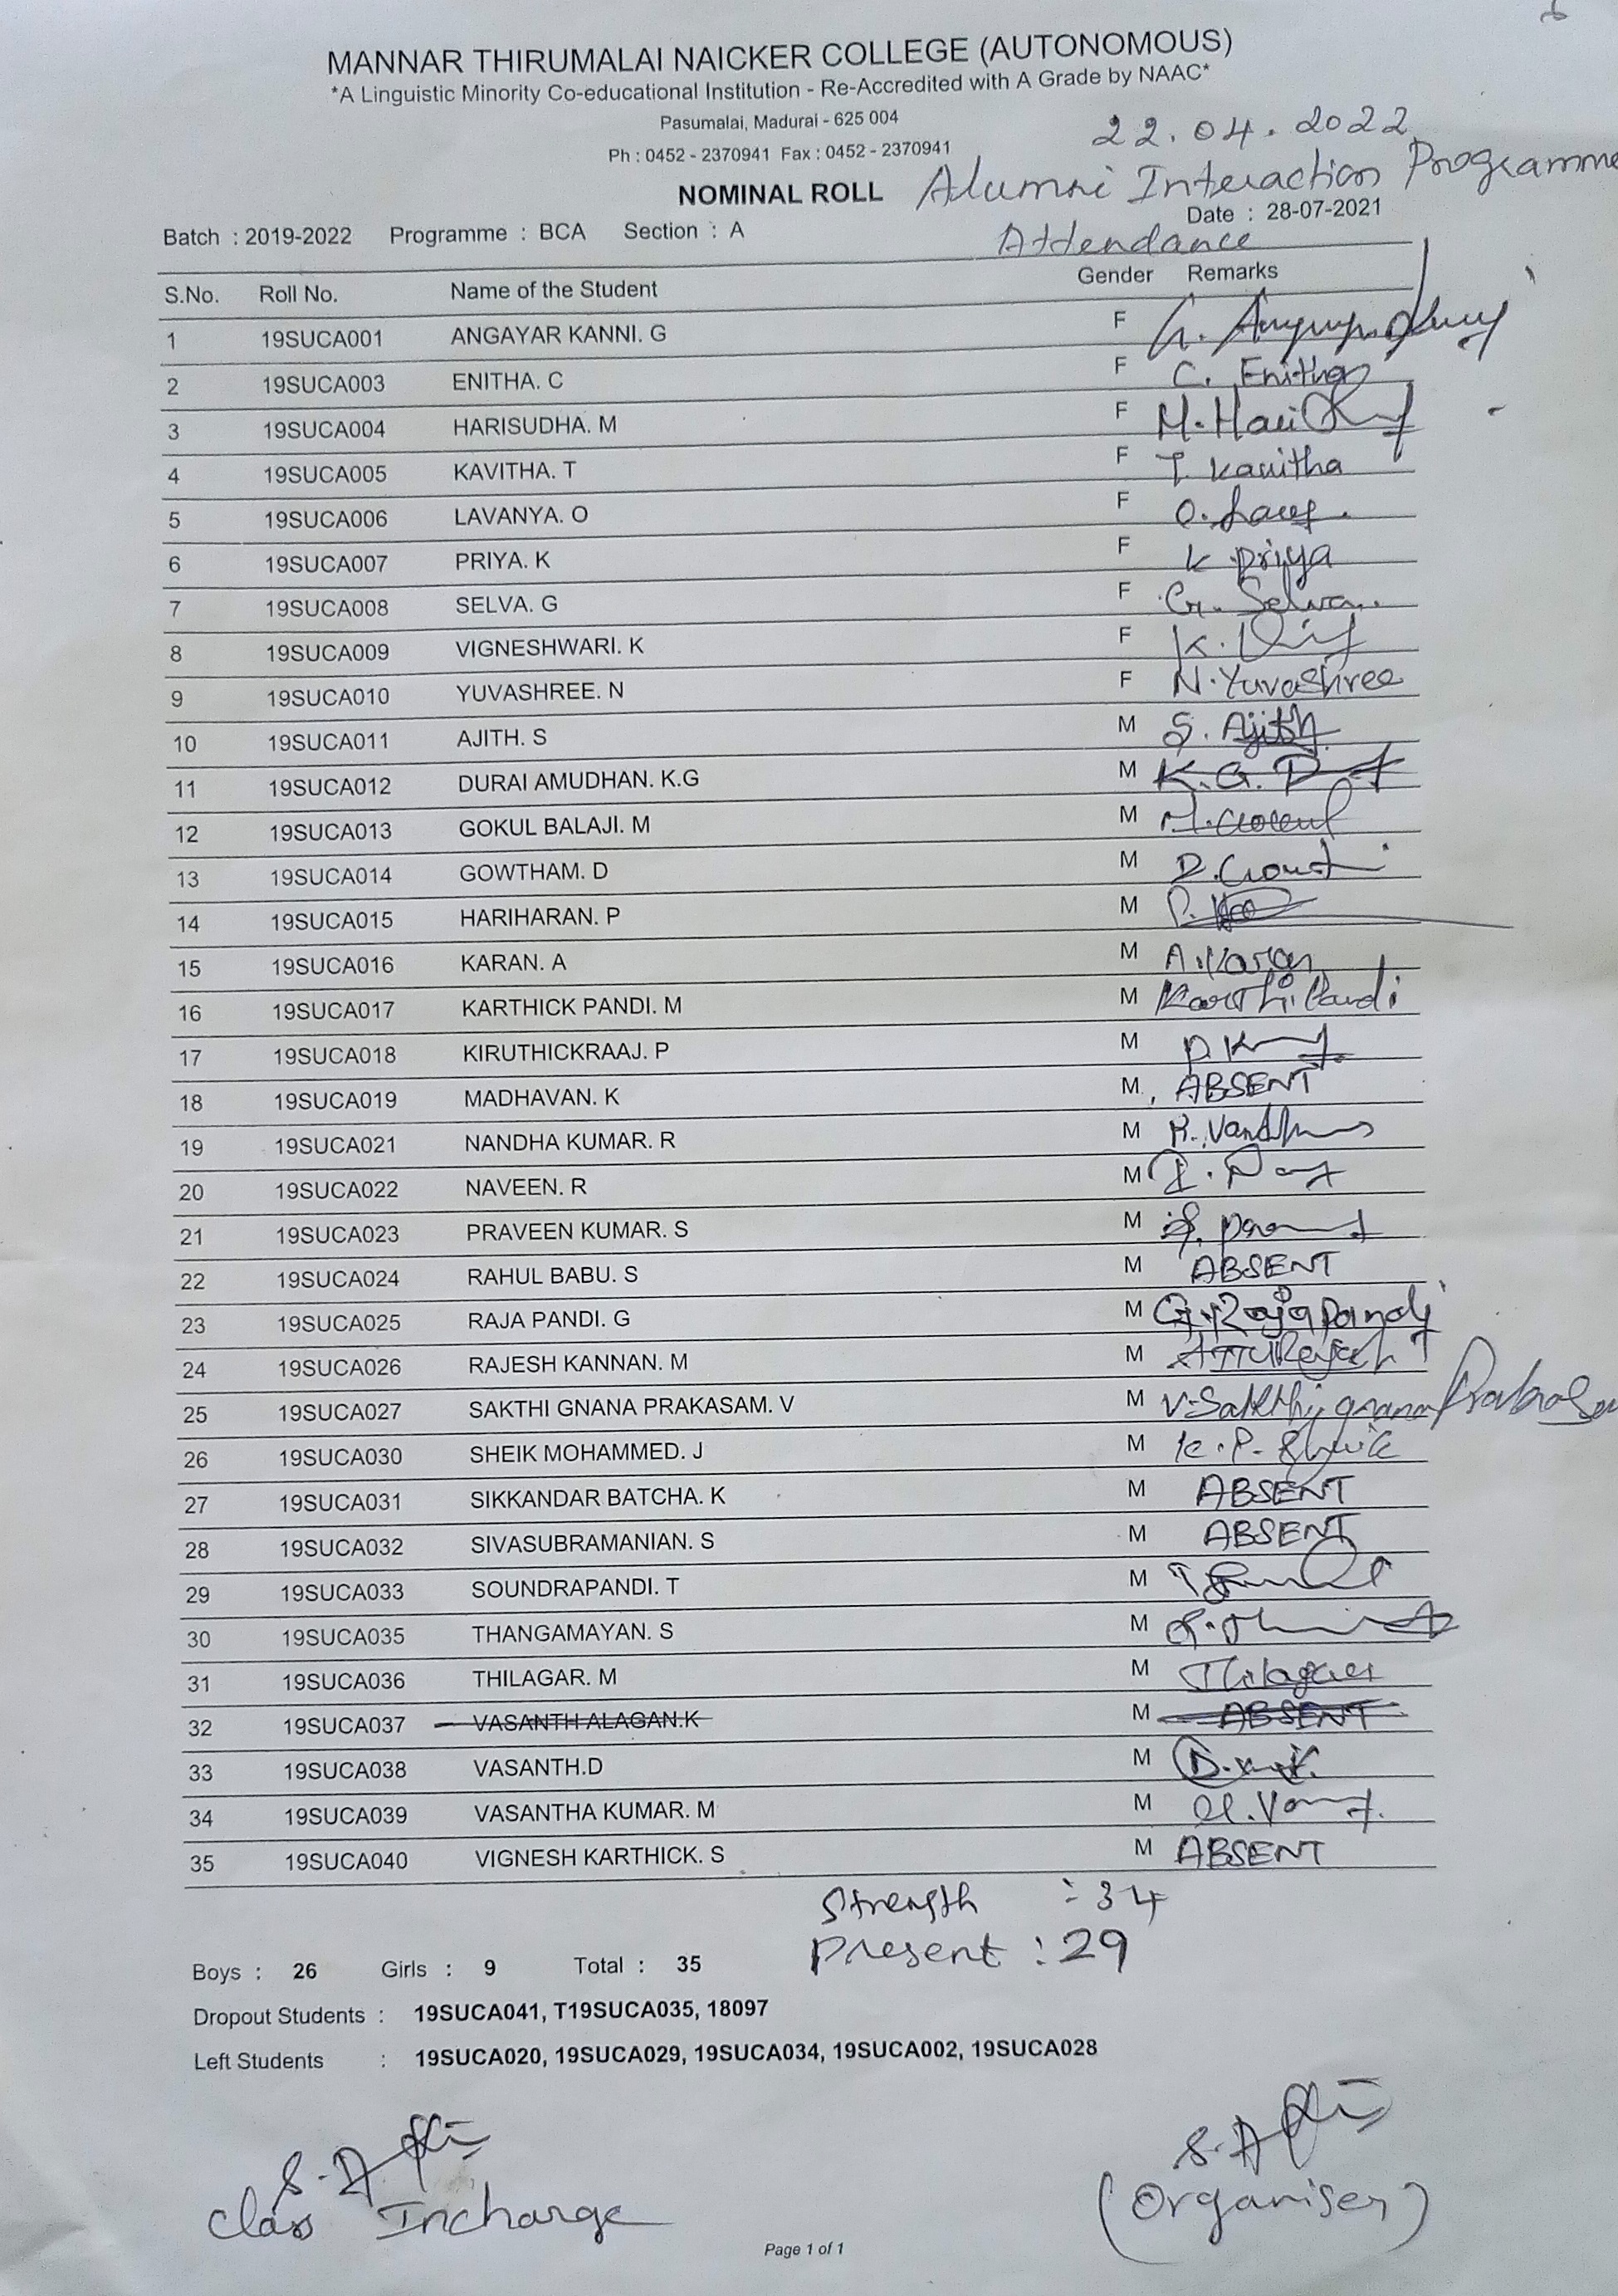 MANNAR THIRUMALAI NAICKER COLLEGE (AUTONOMOUS)
*A Linguistic Minority Co-educational Institution - Re-Accredited with A Grade by NAAC*
Pasumalai, Madurai - 625 004
22.04.2022
Ph : 0452 - 2370941 Fax : 0452 - 2370941
NOMINAL ROLL Alumni Interaction Programme
Batch : 2019-2022 Programme : BCA Section : A Date : 28-07-2021
Attendance
S.No. Roll No. Name of the Student Gender Remarks
1 19SUCA001 ANGAYAR KANNI. G F
2 19SUCA003 ENITHA. C F C. Enitha
3 19SUCA004 HARISUDHA. M F
4 19SUCA005 KAVITHA. T F T. Kavitha
5 19SUCA006 LAVANYA. O F
6 19SUCA007 PRIYA. K F K Priya
7 19SUCA008 SELVA. G F G. Selva.
8 19SUCA009 VIGNESHWARI. K F
9 19SUCA010 YUVASHREE. N F N. Yuvashree
10 19SUCA011 AJITH. S M S. Ajith
11 19SUCA012 DURAI AMUDHAN. K.G M
12 19SUCA013 GOKUL BALAJI. M M
13 19SUCA014 GOWTHAM. D M
14 19SUCA015 HARIHARAN. P M
15 19SUCA016 KARAN. A M A. Karan
16 19SUCA017 KARTHICK PANDI. M M
17 19SUCA018 KIRUTHICKRAAJ. P M
18 19SUCA019 MADHAVAN. K M ABSENT
19 19SUCA021 NANDHA KUMAR. R M
20 19SUCA022 NAVEEN. R M
21 19SUCA023 PRAVEEN KUMAR. S M
22 19SUCA024 RAHUL BABU. S M ABSENT
23 19SUCA025 RAJA PANDI. G M G. Rajapandi
24 19SUCA026 RAJESH KANNAN. M M
25 19SUCA027 SAKTHI GNANA PRAKASAM. V M V. Sakthi gnana
26 19SUCA030 SHEIK MOHAMMED. J M
27 19SUCA031 SIKKANDAR BATCHA. K M ABSENT
28 19SUCA032 SIVASUBRAMANIAN. S M ABSENT
29 19SUCA033 SOUNDRAPANDI. T M
30 19SUCA035 THANGAMAYAN. S M
31 19SUCA036 THILAGAR. M M Thilagar
32 19SUCA037 VASANTH ALAGAN.K M ABSENT
33 19SUCA038 VASANTH.D M
34 19SUCA039 VASANTHA KUMAR. M M
35 19SUCA040 VIGNESH KARTHICK. S M ABSENT
Strength : 34
Present : 29
Boys : 26 Girls : 9 Total : 35
Dropout Students : 19SUCA041, T19SUCA035, 18097
Left Students : 19SUCA020, 19SUCA029, 19SUCA034, 19SUCA002, 19SUCA028
Class Incharge
(Organiser)
Page 1 of 1